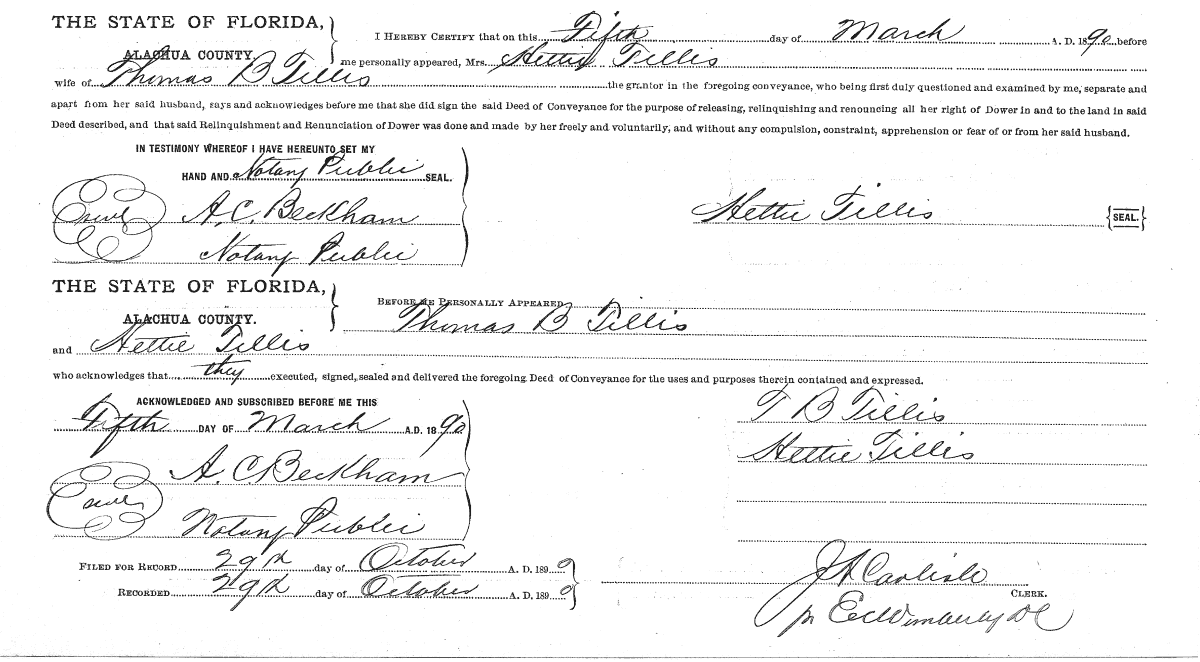 THE STATE OF FLORIDA,
ALACHUA COUNTY.
I HEREBY CERTIFY that on this Fifth day of March A. D. 1890 before
me personally appeared, Mrs. Hettie Tillis
wife of Thomas B Tillis the grantor in the foregoing conveyance, who being first duly questioned and examined by me, separate and
apart from her said husband, says and acknowledges before me that she did sign the said Deed of Conveyance for the purpose of releasing, relinquishing and renouncing all her right of Dower in and to the land in said
Deed described, and that said Relinquishment and Renunciation of Dower was done and made by her freely and voluntarily, and without any compulsion, constraint, apprehension or fear of or from her said husband.
IN TESTIMONY WHEREOF I HAVE HEREUNTO SET MY
HAND AND Notary Public SEAL.
A. C. Beckham
Notary Public
Hettie Tillis {SEAL.}
THE STATE OF FLORIDA,
ALACHUA COUNTY.
BEFORE ME PERSONALLY APPEARED
Thomas B Tillis
and Hettie Tillis
who acknowledges that they executed, signed, sealed and delivered the foregoing Deed of Conveyance for the uses and purposes therein contained and expressed.
ACKNOWLEDGED AND SUBSCRIBED BEFORE ME THIS
Fifth DAY OF March A.D. 1890
A. C. Beckham
Notary Public
T B Tillis
Hettie Tillis
FILED FOR RECORD 29th day of October A. D. 1890
RECORDED 29th day of October A. D. 1890
J A Carlisle
CLERK.
pr E C Wimberly DC